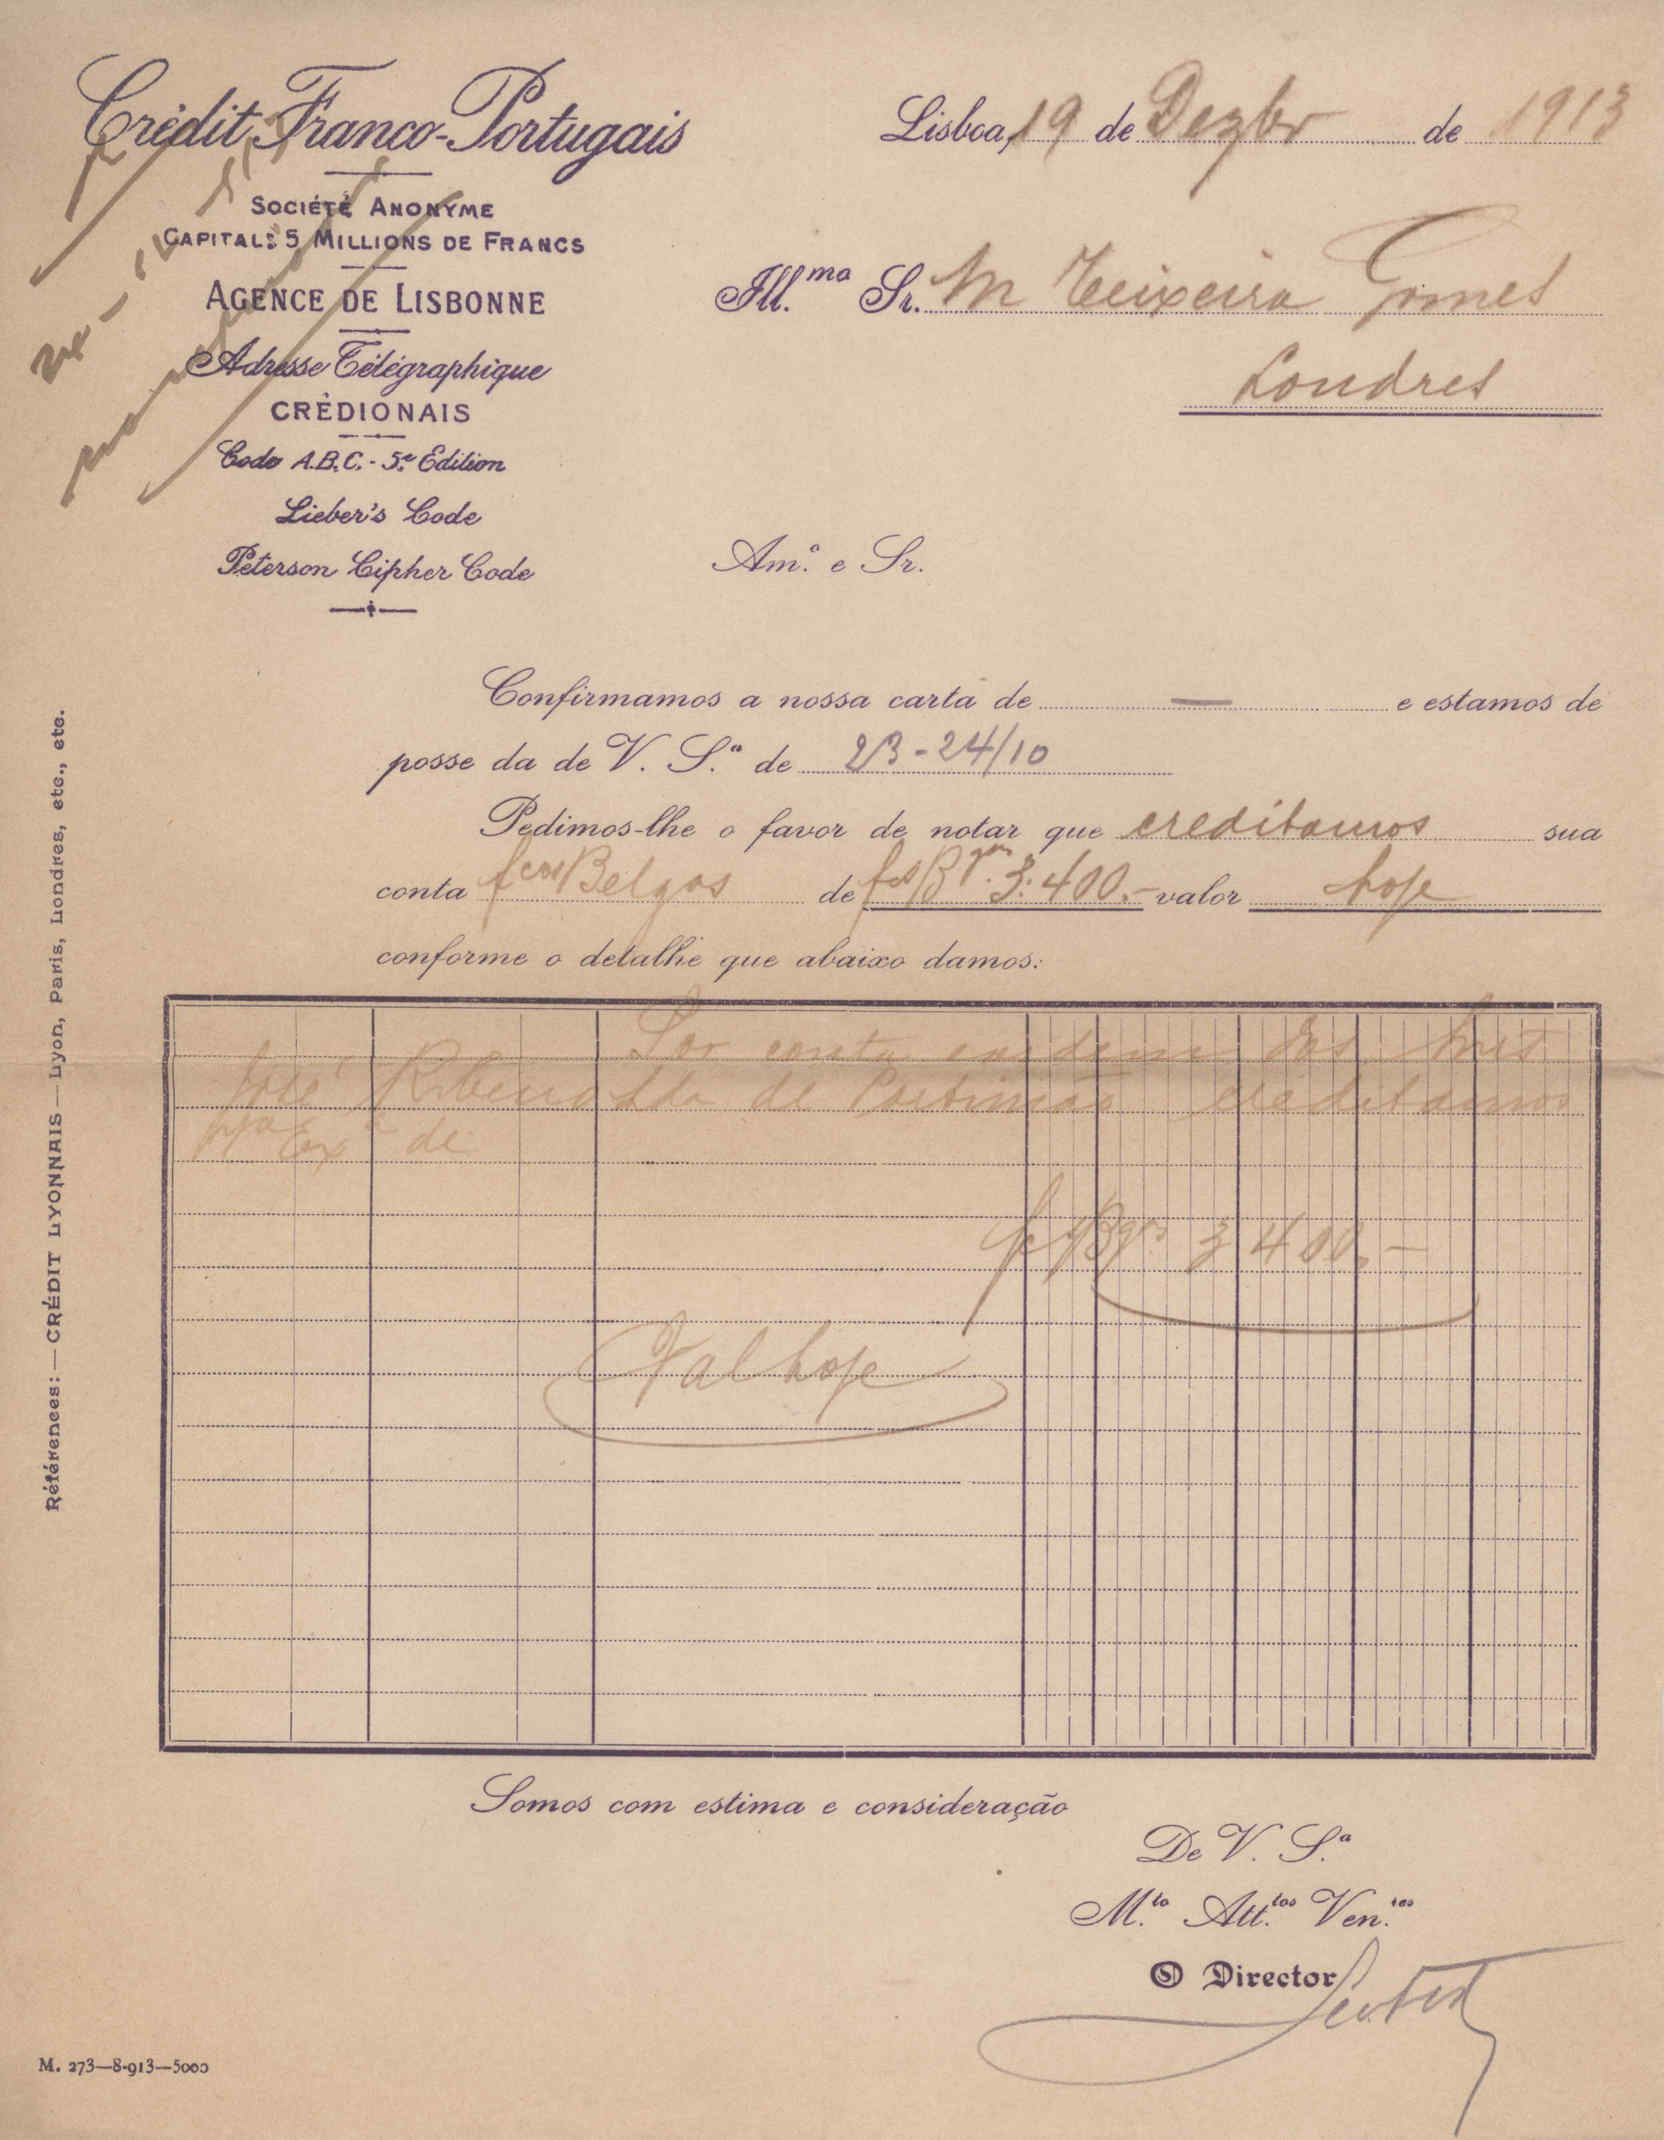 Crédit Franco-Portugais
Société Anonyme
Capital: 5 Millions de Francs
Agence de Lisbonne
Adresse Télégraphique
CRÈDIONAIS
Code A.B.C. - 5.e Edition
Lieber's Code
Peterson Cipher Code
Lisboa, 19 de Dezbr de 1913
Ill.mo Sr. M Teixeira Gomes
Londres
Am.o e Sr.
Confirmamos a nossa carta de — e estamos de
posse da de V. S.a de 23-24/10
Pedimos-lhe o favor de notar que creditamos sua
conta fcos Belgas de fcs Bgas. 3:400.- valor hoje
conforme o detalhe que abaixo damos:
Por conta e ordem dos Snrs
José Ribeiro & de Portimão creditamos
V Exa de
fcs Bgas 3 400.-
Val hoje
Somos com estima e consideração
De V. S.a
M.to Att.tos Ven.res
O Director
Références: — CRÉDIT LYONNAIS — Lyon, Paris, Londres, etc., etc.
M. 273—8-913—5000